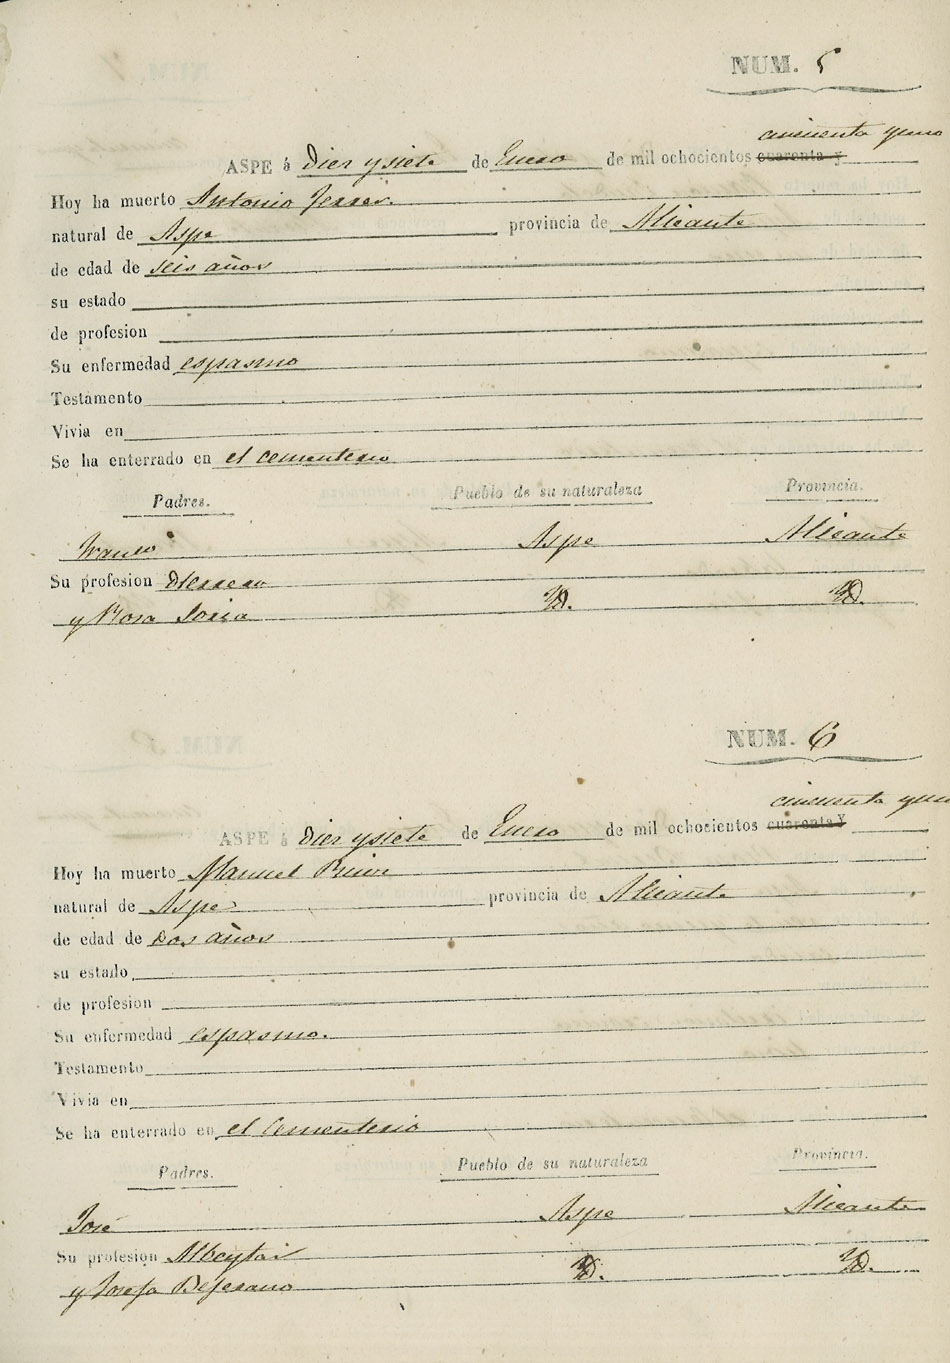 NUM. 5
cincuenta y uno
ASPE á Diez y siete de Enero de mil ochocientos cuarenta y
Hoy ha muerto Antonio Ferrer.
natural de Aspe provincia de Alicante
de edad de seis años
su estado
de profesion
Su enfermedad espasmo
Testamento
Vivia en
Se ha enterrado en el cementerio
Padres. Pueblo de su naturaleza Provincia.
Franco Aspe Alicante
Su profesion Herrero
y Rosa Soria Yd. Yd.
NUM. 6
cincuenta y uno
ASPE á Diez y siete de Enero de mil ochocientos cuarenta y
Hoy ha muerto Manuel
natural de Aspe provincia de Alicante
de edad de Dos años
su estado
de profesion
Su enfermedad espasmo.
Testamento
Vivia en
Se ha enterrado en el Cementerio
Padres. Pueblo de su naturaleza Provincia.
José Aspe Alicante
Su profesion Albeytar
y Josefa Bejerano Yd. Yd.